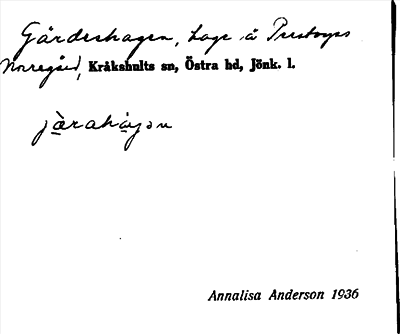 Gärdeshagen, hage å Prestorps
Norregård, Kråkshults sn, Östra hd, Jönk. l.
jæ̀rahàɡən
Annalisa Anderson 1936